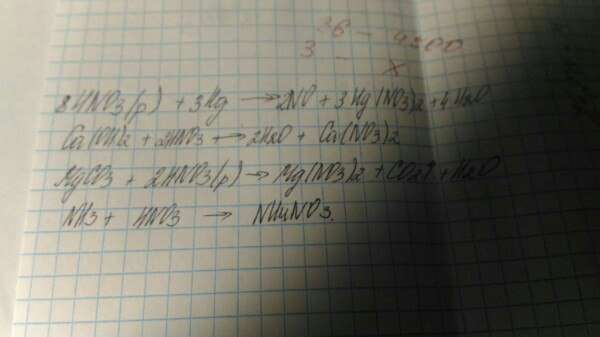 36 - 4200
3 - x
8HNO3(p) + 3Hg → 2NO + 3Hg(NO3)2 + 4H2O
Ca(OH)2 + 2HNO3 → 2H2O + Ca(NO3)2
MgCO3 + 2HNO3(p) → Mg(NO3)2 + CO2↑ + H2O
NH3 + HNO3 → NH4NO3.